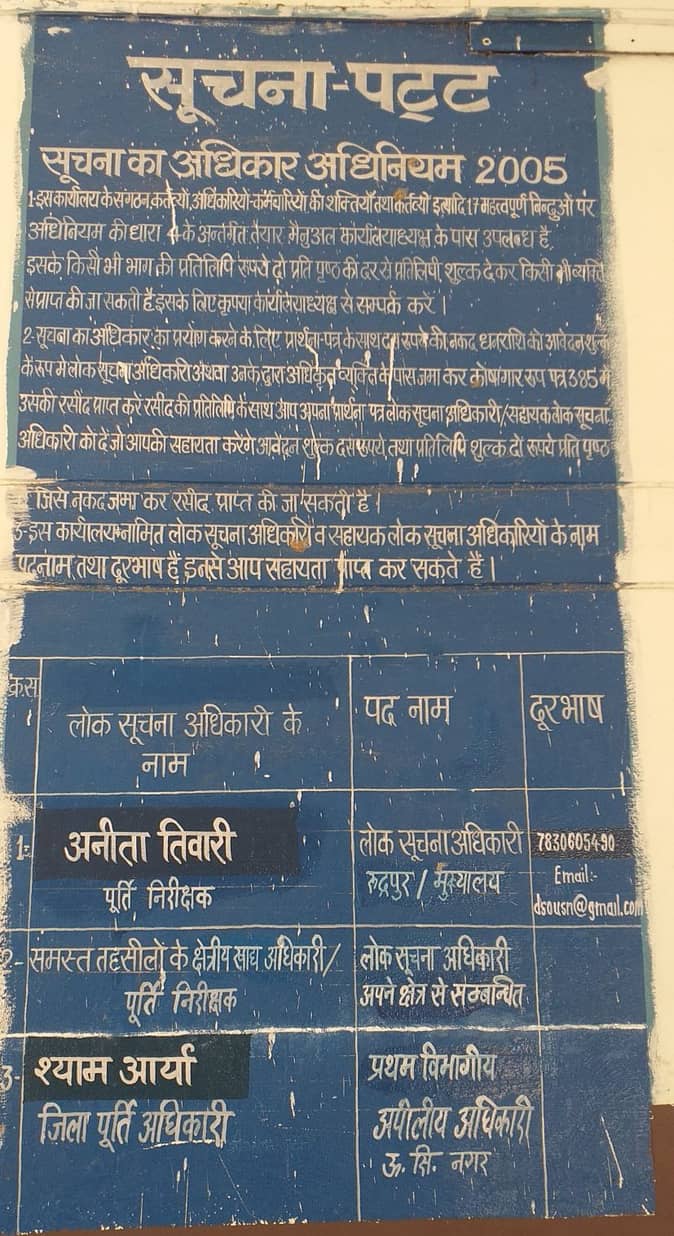 सूचना-पट्ट
सूचना का अधिकार अधिनियम 2005
1-इस कार्यालय के संगठन, कर्तव्यों, अधिकारियों-कर्मचारियों की शक्तियाँ तथा कर्तव्यों इत्यादि 17 महत्वपूर्ण बिन्दुओं पर
अधिनियम की धारा 4 के अन्तर्गत तैयार मैनुअल कार्यालयाध्यक्ष के पास उपलब्ध है,
इसके किसी भी भाग की प्रतिलिपि रूपये दो प्रति पृष्ठ की दर से प्रतिलिपी शुल्क दे कर किसी भी व्यक्ति
से प्राप्त की जा सकती है इसके लिए कृपया कार्यालयाध्यक्ष से सम्पर्क करें।
2-सूचना का अधिकार का प्रयोग करने के लिए प्रार्थना-पत्र के साथ दस रूपये की नकद धनराशि को आवेदन शुल्क
के रूप मे लोक सूचना अधिकारी अथवा उनके द्वारा अधिकृत व्यक्ति के पास जमा कर कोषागार रूप पत्र 385 में
उसकी रसीद प्राप्त करें रसीद की प्रतिलिपि के साथ आप अपना प्रार्थना पत्र लोक सूचना अधिकारी/सहायक लोक सूचना
अधिकारी को दें जो आपकी सहायता करेंगे आवेदन शुल्क दस रूपये तथा प्रतिलिपि शुल्क दो रूपये प्रति पृष्ठ
जिसे नकद जमा कर रसीद प्राप्त की जा सकती है।
3-इस कार्यालय नामित लोक सूचना अधिकारी व सहायक लोक सूचना अधिकारियों के नाम
पदनाम, तथा दूरभाष हैं, इनसे आप सहायता प्राप्त कर सकते हैं।
क्रस
लोक सूचना अधिकारी के
नाम
पद नाम
दूरभाष
1-
अनीता तिवारी
पूर्ति निरीक्षक
लोक सूचना अधिकारी
रूद्रपुर / मुख्यालय
7830605490
Email:-
dsousn@gmail.com
2- समस्त तहसीलों के क्षेत्रीय खाद्य अधिकारी/
पूर्ति निरीक्षक
लोक सूचना अधिकारी
अपने क्षेत्र से सम्बन्धित
3- श्याम आर्या
जिला पूर्ति अधिकारी
प्रथम विभागीय
अपीलीय अधिकारी
ऊ. सि. नगर